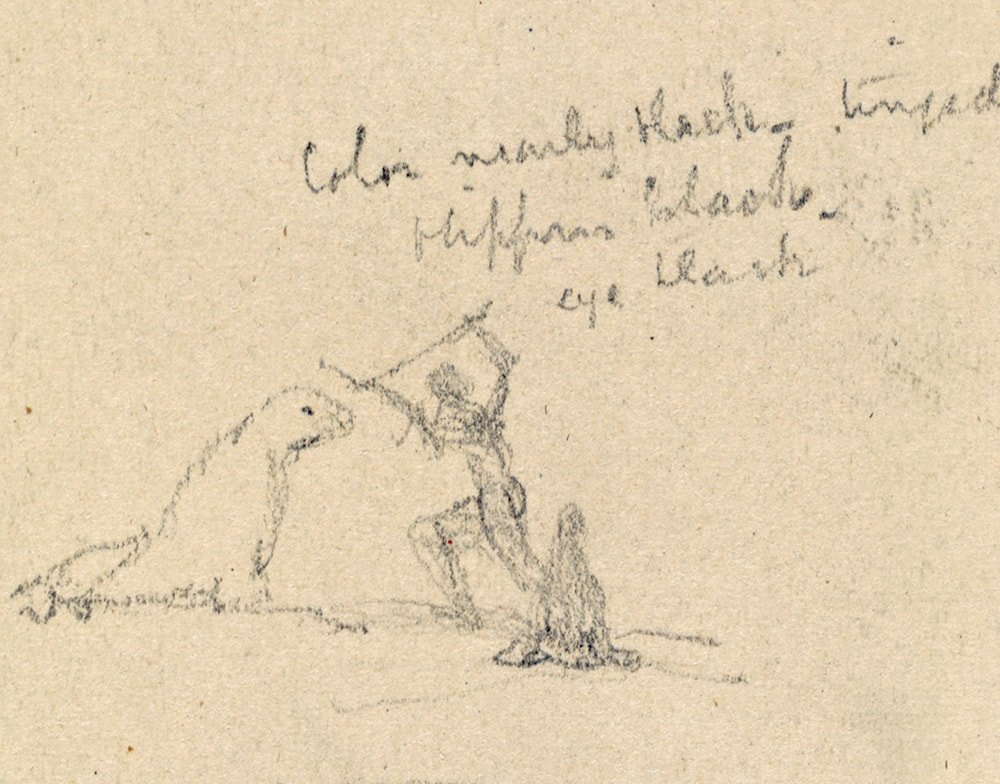 Color nearly black - tinged
flippers black -
eye black